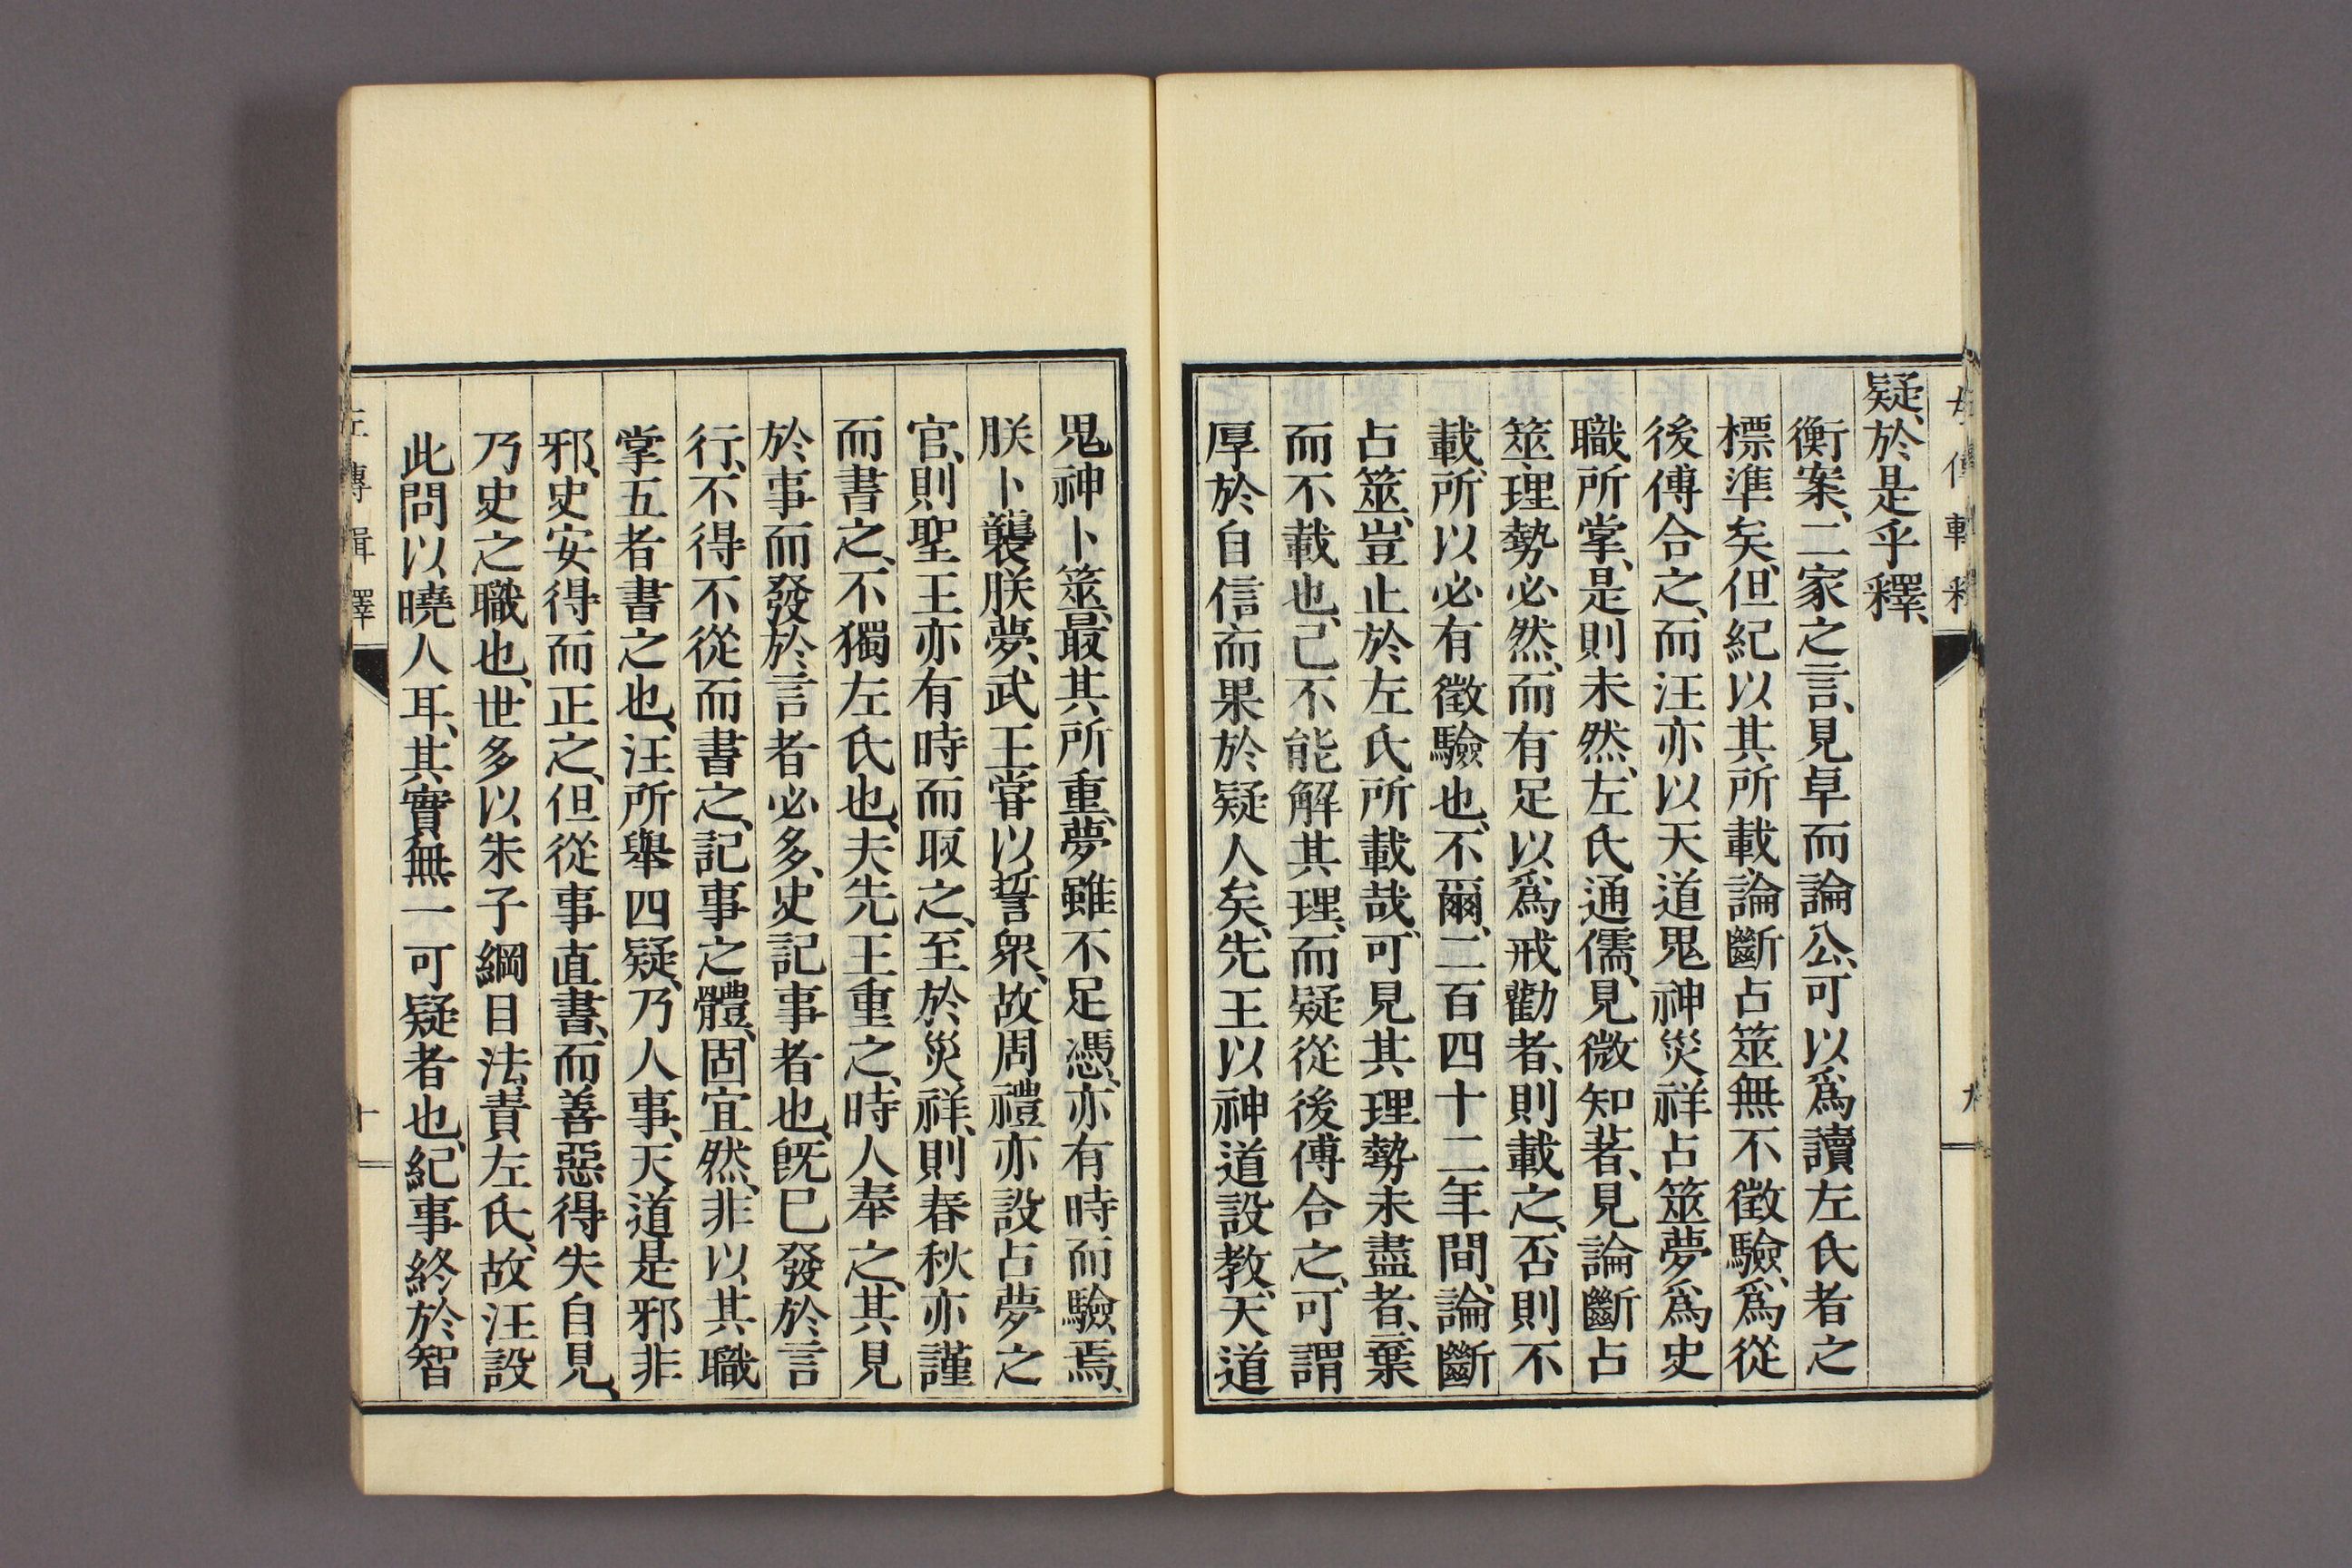 疑、於是乎釋、
衡案、二家之言、見卓而論公、可以爲讀左氏者之
標準矣、但紀以其所載論斷占筮無不徵驗、爲從
後傅合之、而汪亦以天道鬼神災祥占筮夢爲史
職所掌、是則未然、左氏通儒、見微知著、見論斷占
筮理勢必然、而有足以爲戒勸者、則載之、否則不
載、所以必有徵驗也、不爾、二百四十二年間、論斷
占筮、豈止於左氏所載哉、可見其理勢未盡者、棄
而不載也、己不能解其理、而疑從後傅合之、可謂
厚於自信而果於疑人矣、先王以神道設教、天道
鬼神卜筮、最其所重、夢雖不足憑、亦有時而驗焉、
朕卜襲朕夢、武王甞以誓衆、故周禮亦設占夢之
官、則聖王亦有時而取之、至於災祥、則春秋亦謹
而書之、不獨左氏也、夫先王重之、時人奉之、其見
於事而發於言者必多、史記事者也、既已發於言
行、不得不從而書之、記事之體、固宜然、非以其職
掌五者書之也、汪所舉四疑、乃人事、天道是邪非
邪、史安得而正之、但從事直書、而善惡得失自見、
乃史之職也、世多以朱子綱目法、責左氏、故汪設
此問以曉人耳、其實無一可疑者也、紀事終於智
左傳輯釋
十